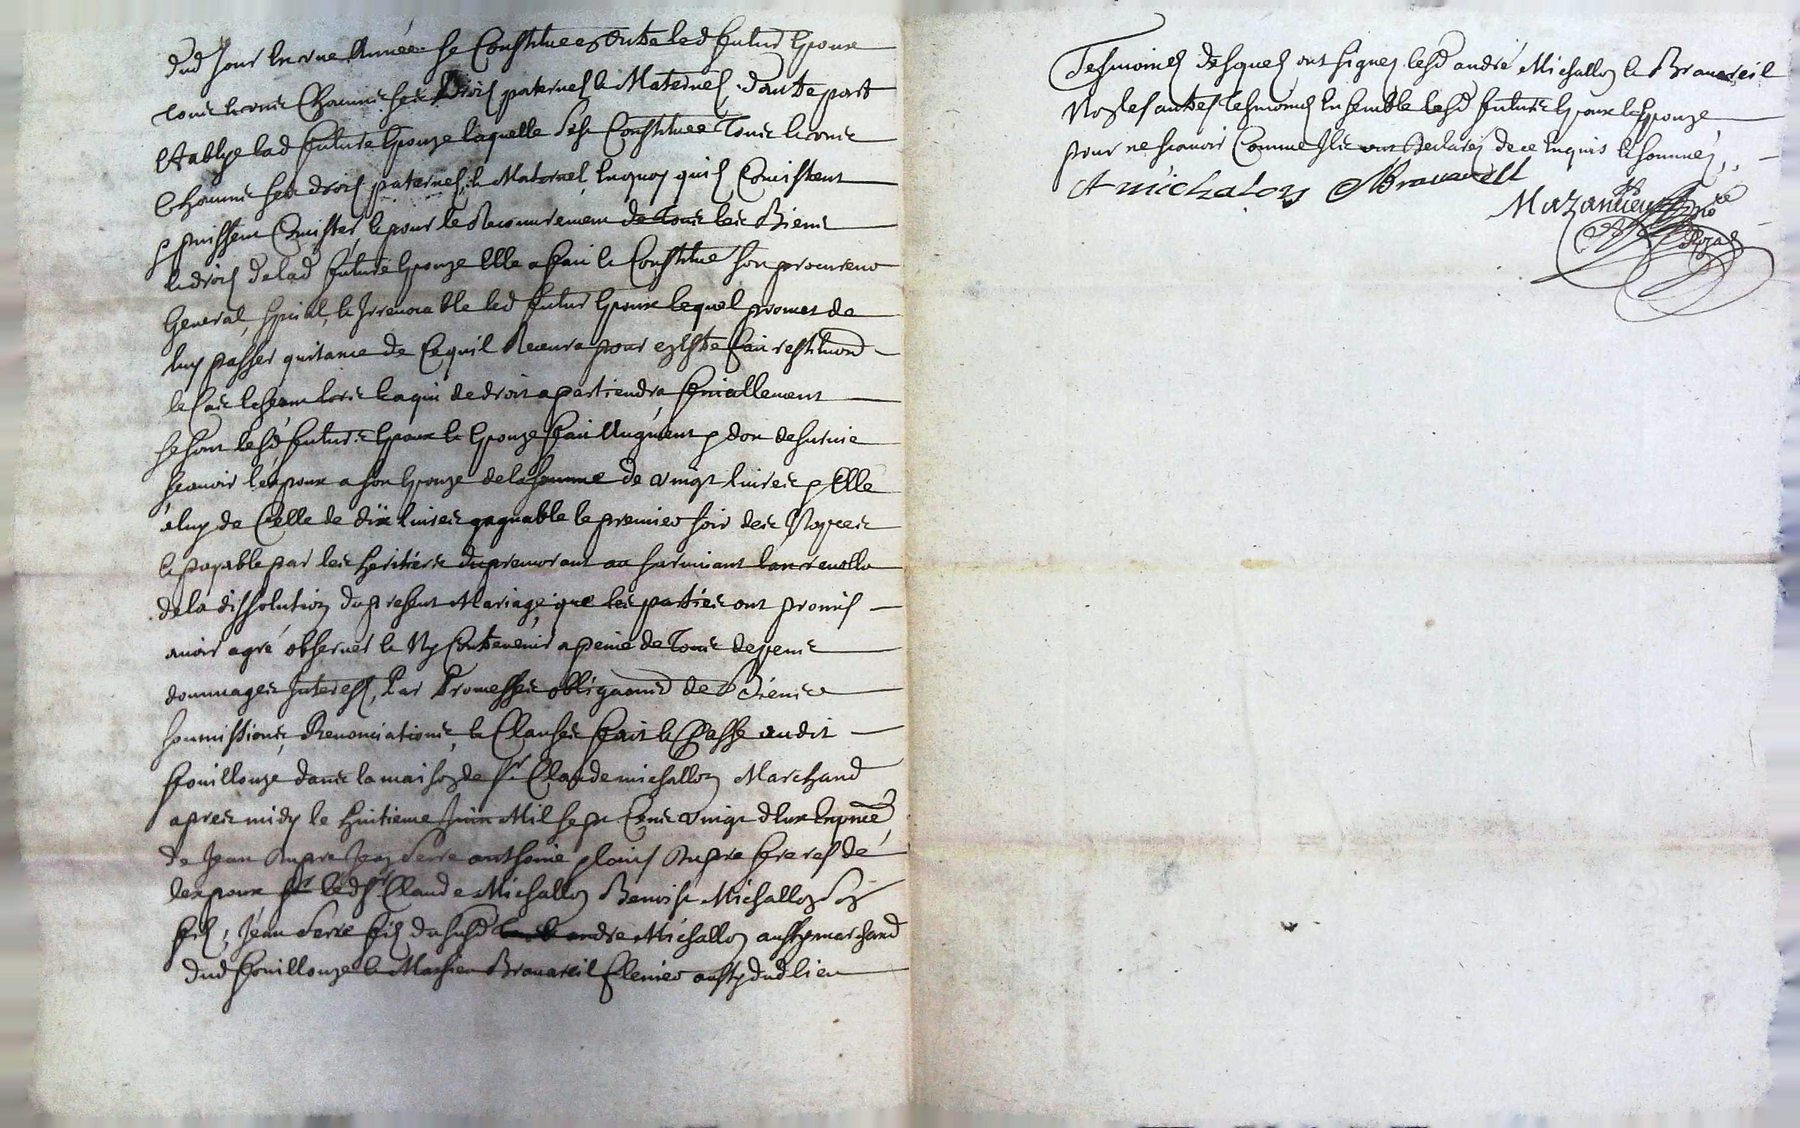 dud jour en une Année se Constitue en outre led futur Epoux
tous et uns Chacuns ses Droits paternels et Maternels, dautre part
Et ablye lad future Epouze laquelle s'est Constituée tous et uns
Chacuns ses droits paternels, et Maternels, En quoy quils Consistent
p puissent Consister, et pour le Recouvrement de tous les Biens
et droits de lad future Epouze Elle a fait et Constitue son procureur
General, special, et Irrevocable led futur Epoux lequel promet de
luy passer quitance de Ce quil Recevra pour Estre fait restitution
le Cas Escheant a qui de droit apartiendra, finallement
se sont lesd futurs Epoux et Epouze fait Augment p don de survie
scavoir l'epoux a son Epouze de la somme de vingt livres p Elle
a luy de Celle de dix livres gagnable le premier soir des Nopces
et payable par les heritiers du premourant au survivant lan revollu
de la dissolution du present Mariage, que les parties ont promis
avoir agré observer et Ny Contrevenir a peine de tous depens
dommages Interests, Par Promesses obligations de Biens
soumissions, Renonciations, et Clauses fait et Passé audit
ffouillouze dans la maison de sr Claude michallon Marchand
apres midy le huitieme Juin Mil sept Cens vingt deux En pnce
de Jean Dupre Jean Serre anthoine plains Dupre freres de
lexpoux led sr Claude Michallon Benoist Michallon son
fils, Jean Serre fils du susd andre Michallon aussy marchand
dud fouillouze et Mathieu Bravareil Clerier aussy dud lieu
Tesmoins desquels ont signez lesd andré Michallon et Bravareil
Non les autres tesmoins Ensemble lesd futurs Epoux et Epouze
pour ne scavoir Comme Ils ont Declarés de ce Enquis et sommés,
A michalon MBravareil
Mazandieu Nore
Royal